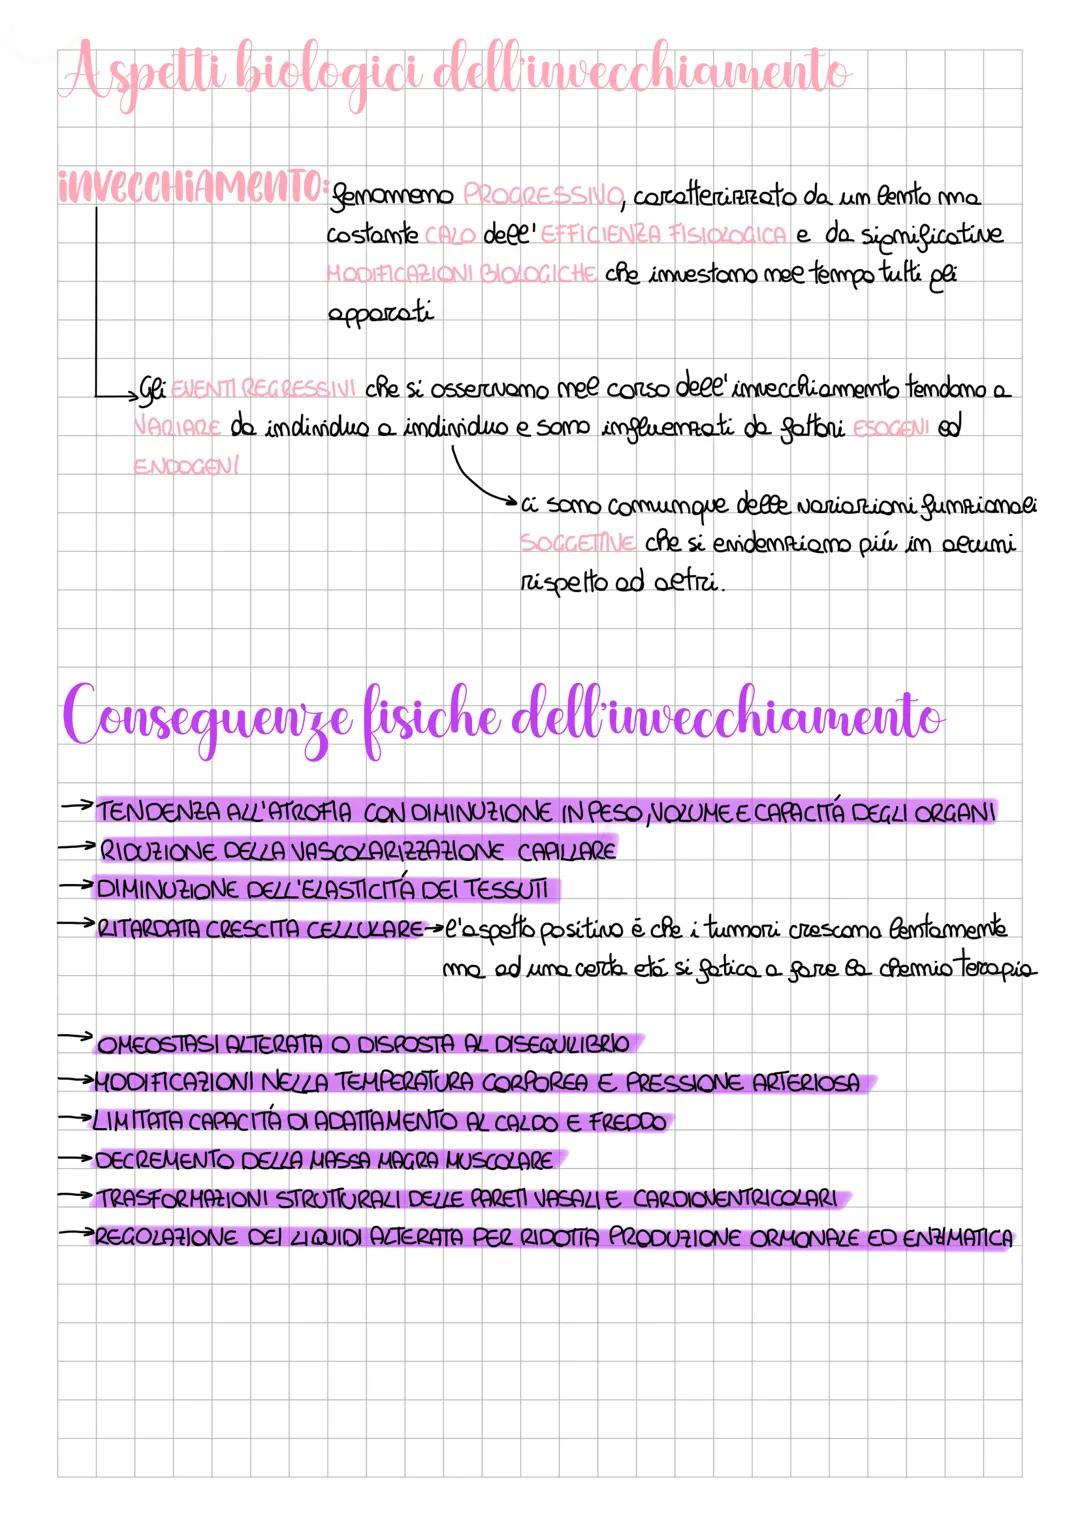 Aspetti biologici dell'invecchiamento
iNVECCHiAMENTO: fenomeno PROGRESSIVO, caratterizzato da un lento ma
costante CALO dell' EFFICIENZA FISIOLOGICA e da significative
MODIFICAZIONI BIOLOGICHE che investono nel tempo tutti gli
apparati
Gli EVENTI REGRESSIVI che si osservano nel corso dell'invecchiamento tendono a
VARIARE da individuo a individuo e sono influenzati da fattori ESOGENI ed
ENDOGENI
ci sono comunque delle variazioni funzionali
SOGGETTIVE che si evidenziano più in alcuni
rispetto ad altri.
Conseguenze fisiche dell'invecchiamento
→ TENDENZA ALL'ATROFIA CON DIMINUZIONE IN PESO, VOLUME E CAPACITÁ DEGLI ORGANI
→ RIDUZIONE DELLA VASCOLARIZZAZIONE CAPILLARE
→ DIMINUZIONE DELL'ELASTICITÁ DEI TESSUTI
→ RITARDATA CRESCITA CELLULARE → l'aspetto positivo é che i tumori crescono lentamente
ma ad una certa etá si fatica a fare la chemio terapia
→ OMEOSTASI ALTERATA O DISPOSTA AL DISEQUILIBRIO
→ MODIFICAZIONI NELLA TEMPERATURA CORPOREA E PRESSIONE ARTERIOSA
→ LIMITATA CAPACITÁ DI ADATTAMENTO AL CALDO E FREDDO
→ DECREMENTO DELLA MASSA MAGRA MUSCOLARE
→ TRASFORMAZIONI STRUTTURALI DELLE PARETI VASALI E CARDIOVENTRICOLARI
→ REGOLAZIONE DEI LIQUIDI ALTERATA PER RIDOTTA PRODUZIONE ORMONALE ED ENZIMATICA